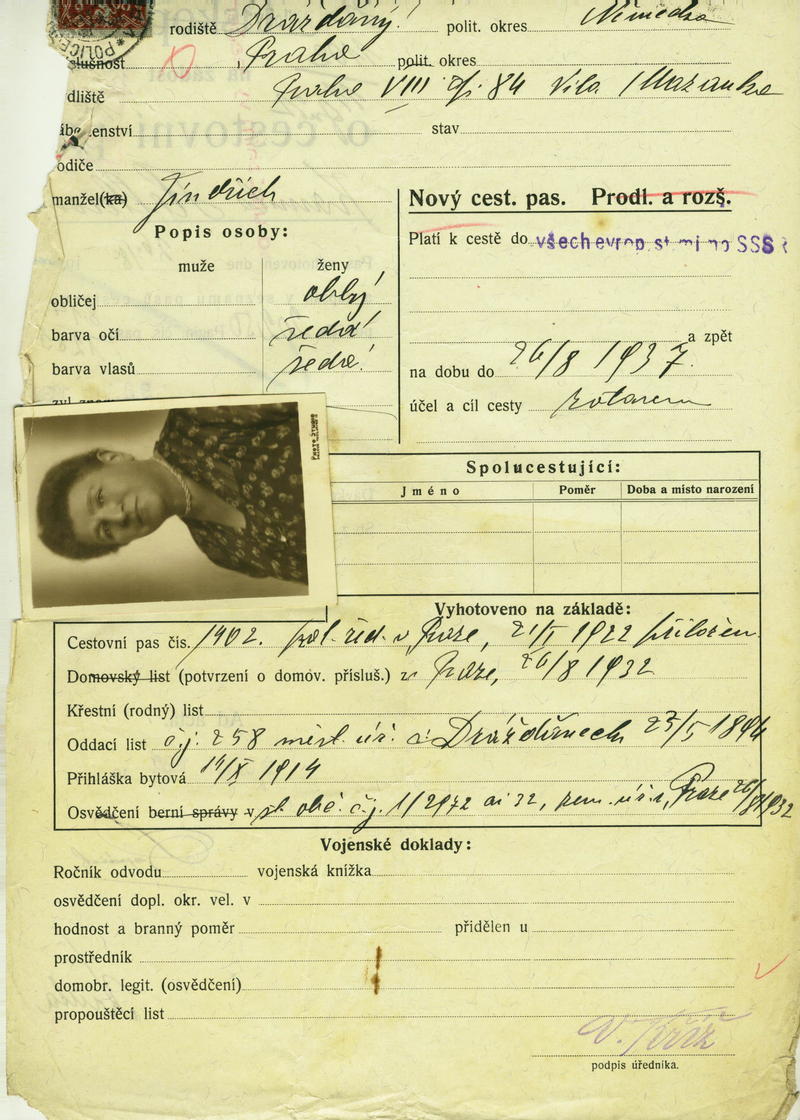 POLICE
rodiště Drážďany! polit. okres Německo
slušnost Praha polit. okres
dliště Praha VIII čp. 84 Vila Mazanka
enství stav
odiče
manžel(ka) Jindřich
Nový cest. pas. Prodl. a rozš.
Popis osoby:
Platí k cestě do všech evrop. SSSR
muže ženy
obličej oblý
barva očí šedá
barva vlasů šedé
a zpět
na dobu do 26/8 1937.
účel a cíl cesty
PHOTO STUDIO
Spolucestující:
Jméno Poměr Doba a místo narození
Vyhotoveno na základě:
Cestovní pas čís. 1902. pol. řed. v Praze, 21/I 1922 přiložen
Domovský list (potvrzení o domov. přísluš.) z Praze, 26/8 1932
Křestní (rodný) list
Oddací list čj. 258 měst. úř. v Drážďanech 23/5 1894
Přihláška bytová 14/X 1914
Osvědčení berní správy v čj. 1/2972 ai 32, zem. úř. v Praze 26/8 1932
Vojenské doklady:
Ročník odvodu vojenská knížka
osvědčení dopl. okr. vel. v
hodnost a branný poměr přidělen u
prostředník
domobr. legit. (osvědčení)
propouštěcí list
V. Kříž
podpis úředníka.